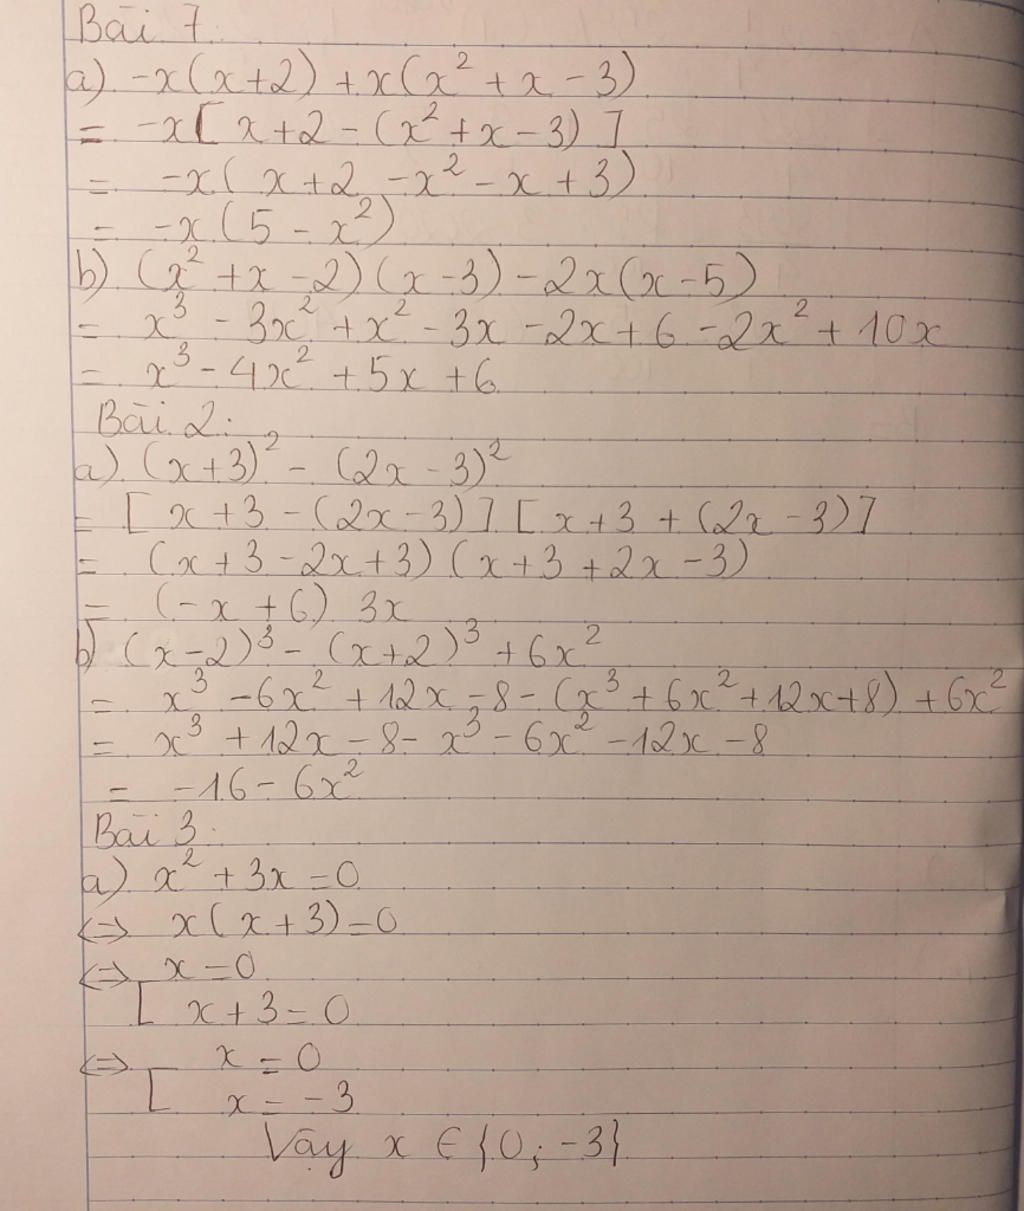 Bài 1:
a) -x(x+2) + x(x² + x - 3)
= -x[x+2 - (x² + x - 3)]
= -x(x+2 - x² - x + 3)
= -x(5 - x²)
b) (x² + x - 2)(x - 3) - 2x(x - 5)
= x³ - 3x² + x² - 3x - 2x + 6 - 2x² + 10x
= x³ - 4x² + 5x + 6
Bài 2:
a) (x+3)² - (2x - 3)²
= [x+3 - (2x - 3)][x+3 + (2x - 3)]
= (x+3 - 2x+3)(x+3 + 2x - 3)
= (-x + 6) 3x
b) (x-2)³ - (x+2)³ + 6x²
= x³ - 6x² + 12x - 8 - (x³ + 6x² + 12x + 8) + 6x²
= x³ + 12x - 8 - x³ - 6x² - 12x - 8
= -16 - 6x²
Bài 3:
a) x² + 3x = 0
⇔ x(x+3) = 0
⇔ [ x = 0
x + 3 = 0
⇔ [ x = 0
x = -3
Vậy x ∈ {0; -3}